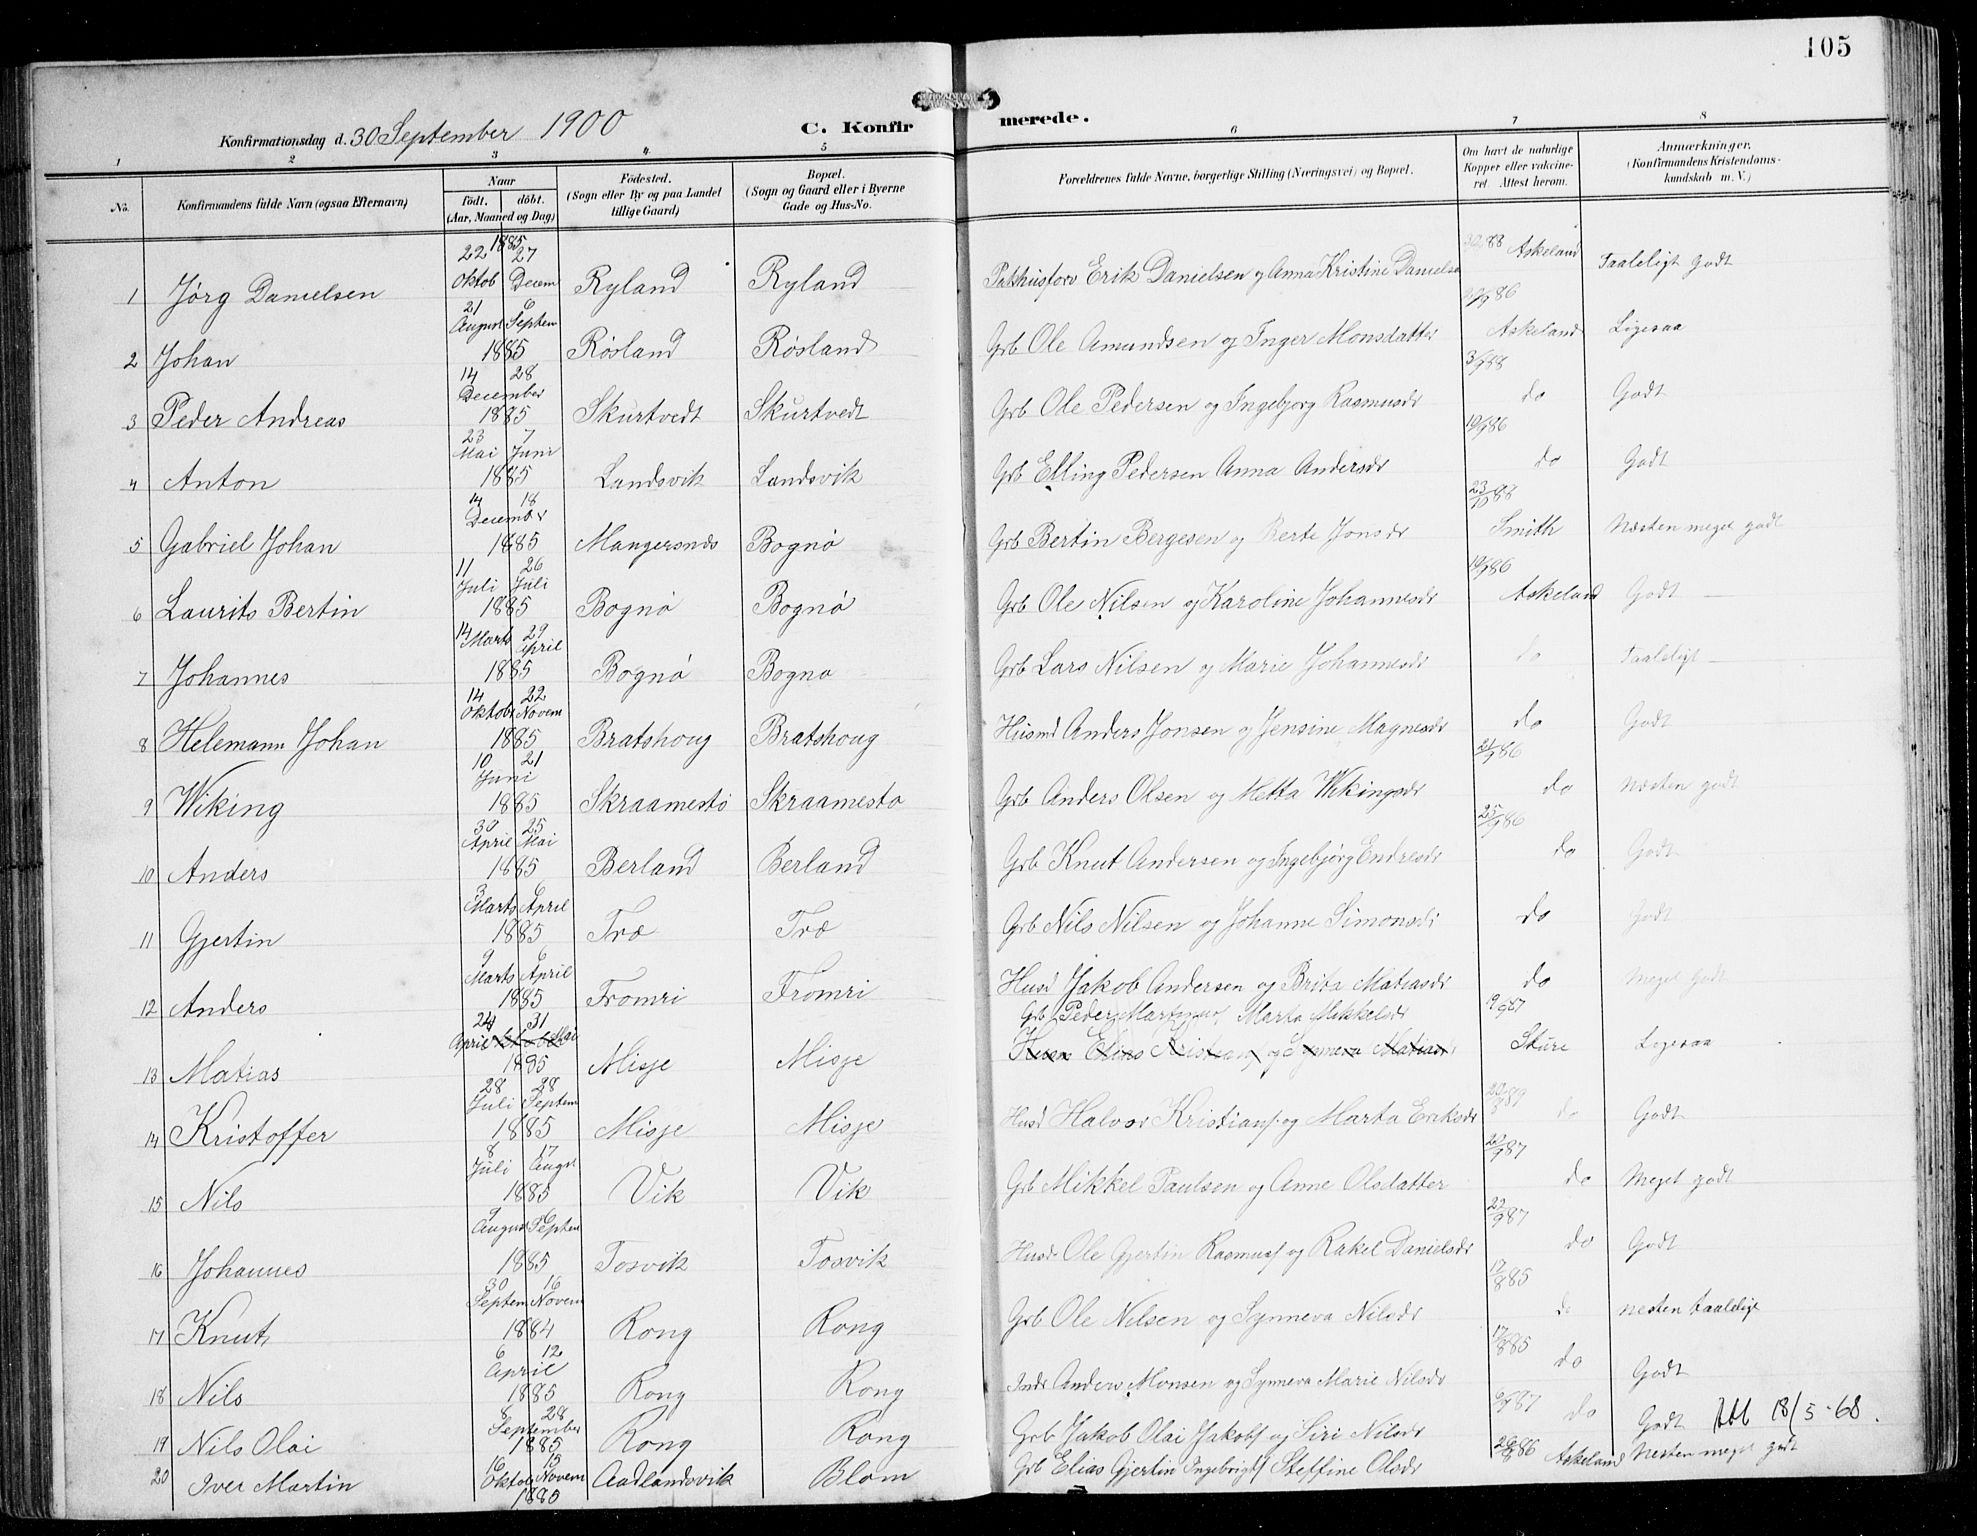 105
Konfirmationsdag d. 30 September 1900 C. Konfirmerede.
1 2 3 4 5 6 7 8
No. Konfirmandens fulde Navn (ogsaa Efternavn) Naar født. døbt. (Aar, Maaned og Dag) Fødested. (Sogn eller By og paa Landet tillige Gaard) Bopæl. (Sogn og Gaard eller i Byerne Gade og Hus-No. Forældrenes fulde Navne, borgerlige Stilling (Næringsvei) og Bopæl. Om havt de naturlige Kopper eller vakcineret. Attest herom. Anmærkninger. (Konfirmandens Kristendomskundskab m. V.)
1 Jørg Danielsen 1885 22 Oktob 27 Decem Ryland Ryland Erik Danielsen og Anna Kristine Askeland Taaleligt godt
2 Johan 21 August 6 Septem 1885 Røsland Røsland Grb Ole Amundsen og Inger Monsdatter Askeland Ligesaa
3 Peder Andreas 14 28 December 1885 Skurtvedt Skurtvedt Grb Ole Pedersen og Ingebjørg Rasmusdr do Godt
4 Anton 23 Mai 7 Juni 1885 Landsvik Landsvik Grb Elling Pedersen Anna Andersdr do Godt
5 Gabriel Johan 14 18 December 1885 Mangersnæs Bognø Grb Bertin Bergesen og Berte Jonsdr 23/10 88 Smith Næsten meget godt
6 Laurits Bertin 11 Juli 26 Juli 1885 Bognø Bognø Grb Ole Nilsen og Karoline Johannesdr Askeland Godt
7 Johannes 14 Marts 29 April 1885 Bognø Bognø Grb Lars Nilsen og Marie Johannesdr do Taaleligt
8 Helemann Johan 14 Oktob 22 Novem 1885 Bratshoug Bratshoug Husmd Anders Jonsen og Jensine Magnesdr do Godt
9 Wiking 10 21 Juni 1885 Skraamestø Skraamestø Grb Anders Olsen og Metta Wikingsdr 21/9 86 do Næsten godt
10 Anders 30 April 25 Mai 1885 Berland Berland Grb Knut Andersen og Ingebjørg Endresdr 25/9 86 do Godt
11 Gjertin 3 Marts 6 April 1885 Træ Træ Grb Nils Nilsen og Johanne Simonsdr do Godt
12 Anders 9 Marts 6 April 1885 Fromri Fromri Husd Jakob Andersen og Brita Matiasdr do Meget godt
13 Matias 24 April 31 Mai 1885 Misje Misje Grb Peder Marta Mikkelsdr Husm Elias Kristians og Synneva Matiasdr Sture Ligesaa
14 Kristoffer 28 Juli 28 Septem 1885 Misje Misje Husd Halvor Kristians og Marta Eriksdr do Godt
15 Nils 8 Juli 17 Augst 1885 Vik Vik Grb Mikkel Paulsen og Anne Olsdatter 20/9 87 do Meget godt
16 Johannes 9 August 6 Septem 1885 Tosvik Tosvik Husd Ole Gjertin Rasmuss og Rakel Danielsdr 22/9 87 do Godt
17 Knut 30 Septem 16 Novem 1884 Rong Rong Grb Ole Nilsen og Synneva Nilsdr 17/8 85 do nesten taalelige
18 Nils 6 12 April 1885 Rong Rong Anders Monsen og Synneva Marie Nilsdr 17/8 85 do Godt
19 Nils Olai 8 28 September 1885 Rong Rong Grb Jakob Olai Jakobs og Siri Nilsdr do Godt 18/5-68.
20 Iver Martin 16 Oktob 15 Novem 1885 Aadlandsvik Blom Grb Elias Gjertin Ingebrigts Steffine Olsdr Askeland Nesten meget godt